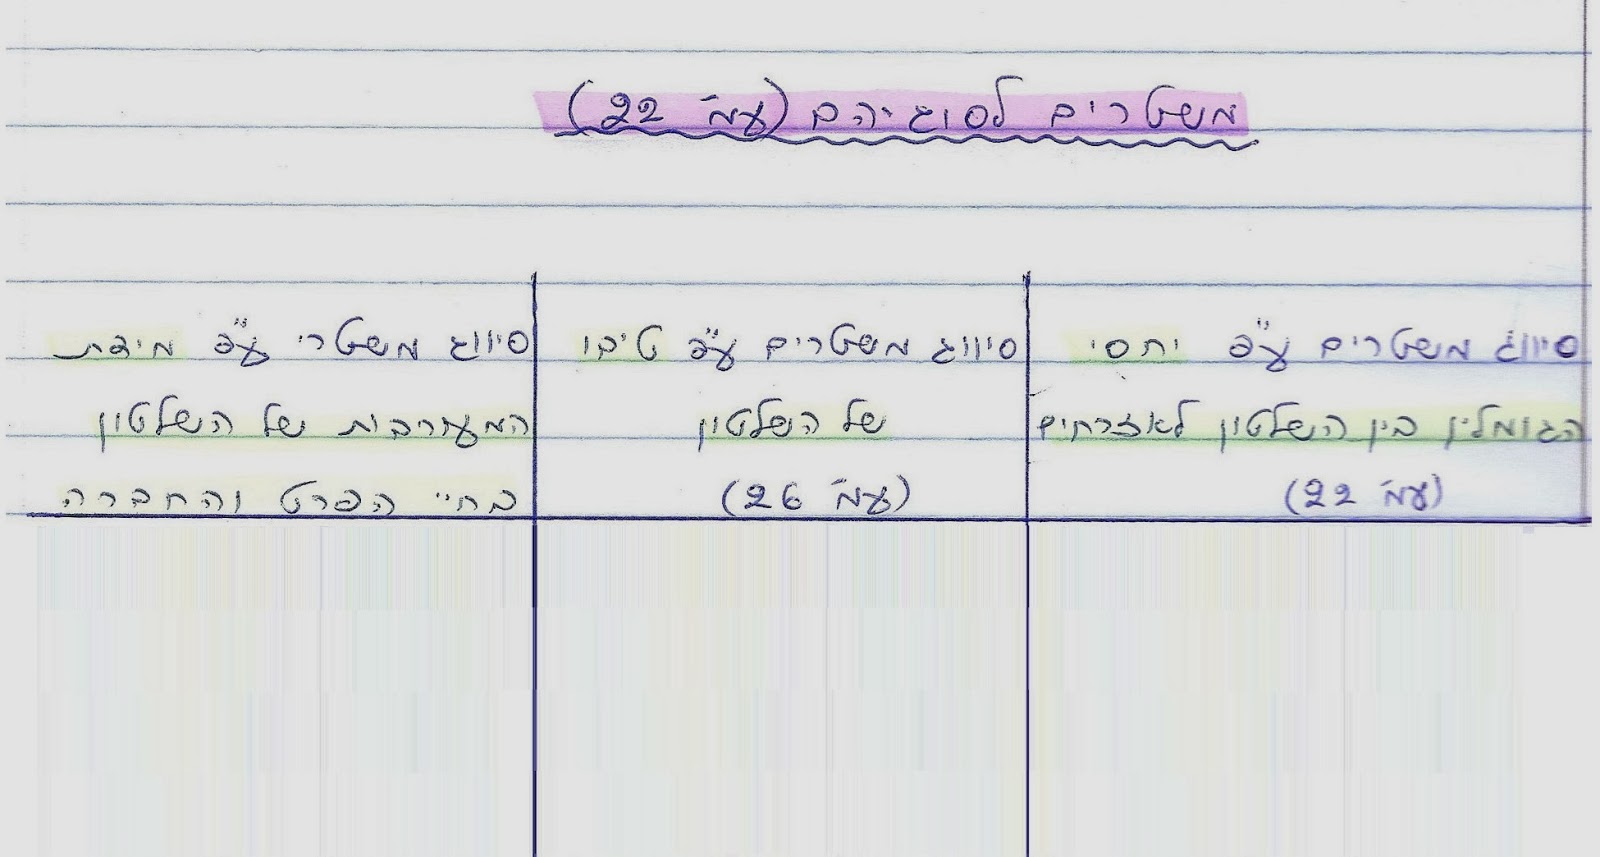 משטרים לסוגיהם (עמ' 22)
סיווג משטרים ע"פ יחסי
הגומלין בין השלטון לאזרחים
(עמ' 22)
סיווג משטרים ע"פ טיבו
של השלטון
(עמ' 26)
סיווג משטרי ע"פ מידת
המעורבות של השלטון
בחיי הפרט והחברה